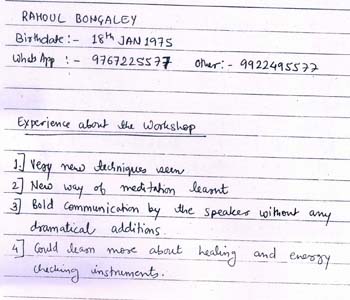 RAHOUL BONGALEY
Birthdate :- 18th JAN 1975
WhatsApp :- 9767225577 Other :- 9922495577
Experience about the Workshop
1.] Very new techniques seen
2] New way of meditation learnt
3] Bold communication by the speaker without any
dramatical additions.
4] Could learn more about healing and energy
checking instruments.